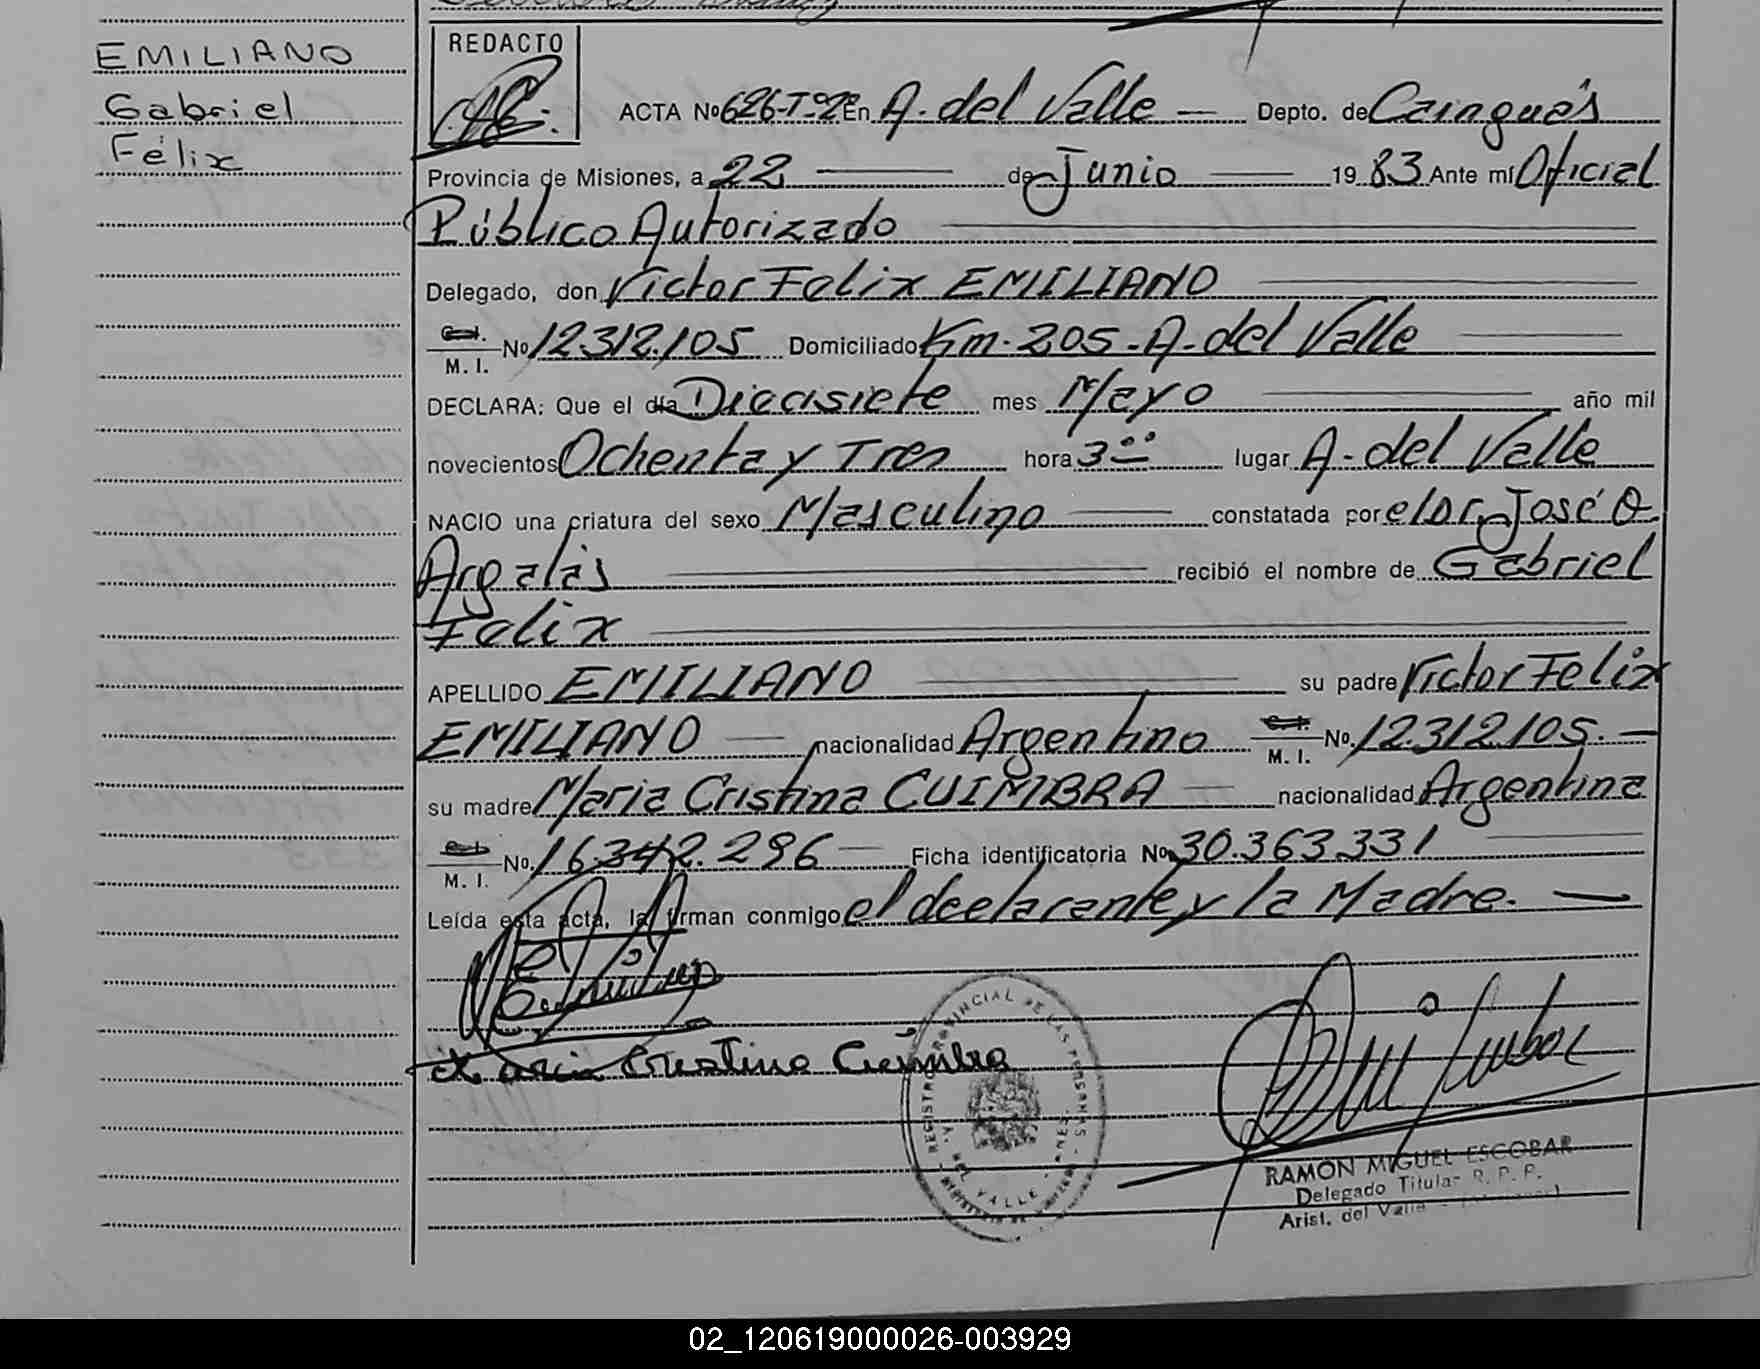 EMILIANO
Gabriel
Félix
REDACTO
ACTA Nº 626-Tº2º En A. del Valle — Depto. de Cainguás
Provincia de Misiones, a 22 — de Junio — 1983 Ante mí Oficial
Público Autorizado
Delegado, don Victor Felix EMILIANO
C.I.
M. I. Nº 12.312.105 Domiciliado Km. 205 - A. del Valle
DECLARA: Que el día Diecisiete mes Mayo — año mil
novecientos Ochenta y Tres hora 3 00 lugar A. del Valle
NACIO una criatura del sexo Masculino — constatada por el Dr. José O
Argalás — recibió el nombre de Gabriel
Felix
APELLIDO EMILIANO — su padre Victor Felix
EMILIANO — nacionalidad Argentino C.I.
M. I. No. 12.312.105. —
su madre Maria Cristina CUIMBRA — nacionalidad Argentina
C.I.
M. I. No. 16.342.296 — Ficha identificatoria No 30.363.331
Leída esta acta, la firman conmigo el declarante y la Madre. —
Maria Cristina Cuimbra
REGISTRO PROVINCIAL DE LAS PERSONAS
DEL VALLE
RAMÓN MIGUEL ESCOBAR
Delegado Titular R. P. P.
Arist. del Valle
02_120619000026-003929